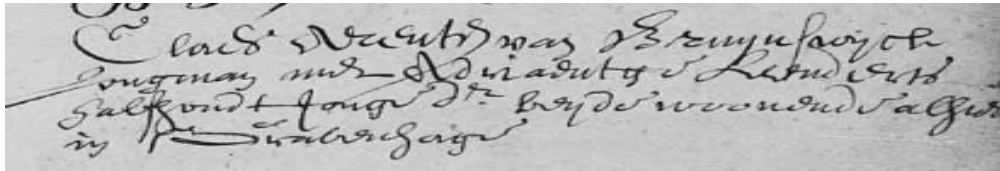 Claes Arentss van Bruijnswijck
Jongman met Adriaentge Leenderts
halffhondt Jonge dr beijde woonende alhier
in sGravenhage